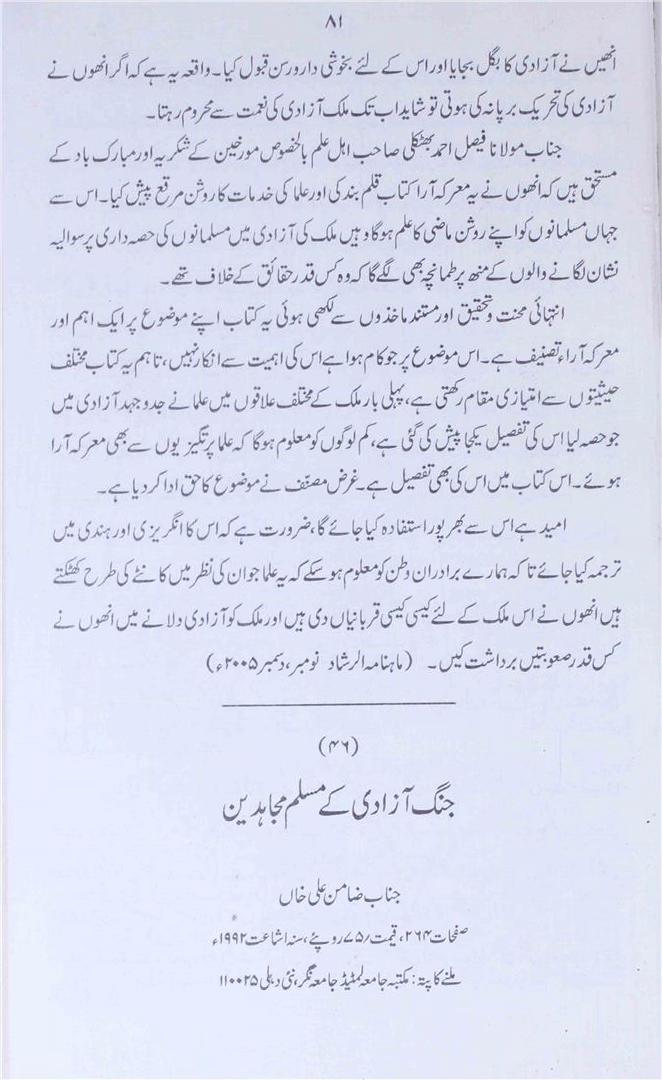 ۸۱
انھیں نے آزادی کا بگل بجایا اور اس کے لئے بخوشی دارورسن قبول کیا۔ واقعہ یہ ہے کہ اگر انھوں نے
آزادی کی تحریک برپا نہ کی ہوتی تو شاید اب تک ملک آزادی کی نعمت سے محروم رہتا۔
جناب مولانا فیصل احمد بھٹکلی صاحب اہل علم بالخصوص مورخین کے شکریہ اور مبارک باد کے
مستحق ہیں کہ انھوں نے یہ معرکہ آرا کتاب قلم بند کی اور علما کی خدمات کا روشن مرقع پیش کیا۔ اس سے
جہاں مسلمانوں کو اپنے روشن ماضی کا علم ہوگا وہیں ملک کی آزادی میں مسلمانوں کی حصہ داری پر سوالیہ
نشان لگانے والوں کے منھ پر طمانچہ بھی لگے گا کہ وہ کس قدر حقائق کے خلاف تھے۔
انتہائی محنت و تحقیق اور مستند ماخذوں سے لکھی ہوئی یہ کتاب اپنے موضوع پر ایک اہم اور
معرکہ آراء تصنیف ہے۔ اس موضوع پر جو کام ہوا ہے اس کی اہمیت سے انکار نہیں، تاہم یہ کتاب مختلف
حیثیتوں سے امتیازی مقام رکھتی ہے، پہلی بار ملک کے مختلف علاقوں میں علما نے جدوجہد آزادی میں
جو حصہ لیا اس کی تفصیل یکجا پیش کی گئی ہے، کم لوگوں کو معلوم ہوگا کہ علما پرتگیزیوں سے بھی معرکہ آرا
ہوئے۔ اس کتاب میں اس کی بھی تفصیل ہے۔ غرض مصنّف نے موضوع کا حق ادا کر دیا ہے۔
امید ہے اس سے بھرپور استفادہ کیا جائے گا، ضرورت ہے کہ اس کا انگریزی اور ہندی میں
ترجمہ کیا جائے تاکہ ہمارے برادران وطن کو معلوم ہو سکے کہ یہ علما جو ان کی نظر میں کانٹے کی طرح کھٹکتے
ہیں انھوں نے اس ملک کے لئے کیسی کیسی قربانیاں دی ہیں اور ملک کو آزادی دلانے میں انھوں نے
کس قدر صعوبتیں برداشت کیں۔ (ماہنامہ الرشاد نومبر، دسمبر ۲۰۰۵ء)
(۴۶)
جنگ آزادی کے مسلم مجاہدین
جناب ضامن علی خاں
صفحات ۲۶۴، قیمت /۷۵ روپئے، سنہ اشاعت ۱۹۹۲ء
ملنے کا پتہ: مکتبہ جامعہ لمٹیڈ جامعہ نگر، نئی دہلی ۱۱۰۰۲۵